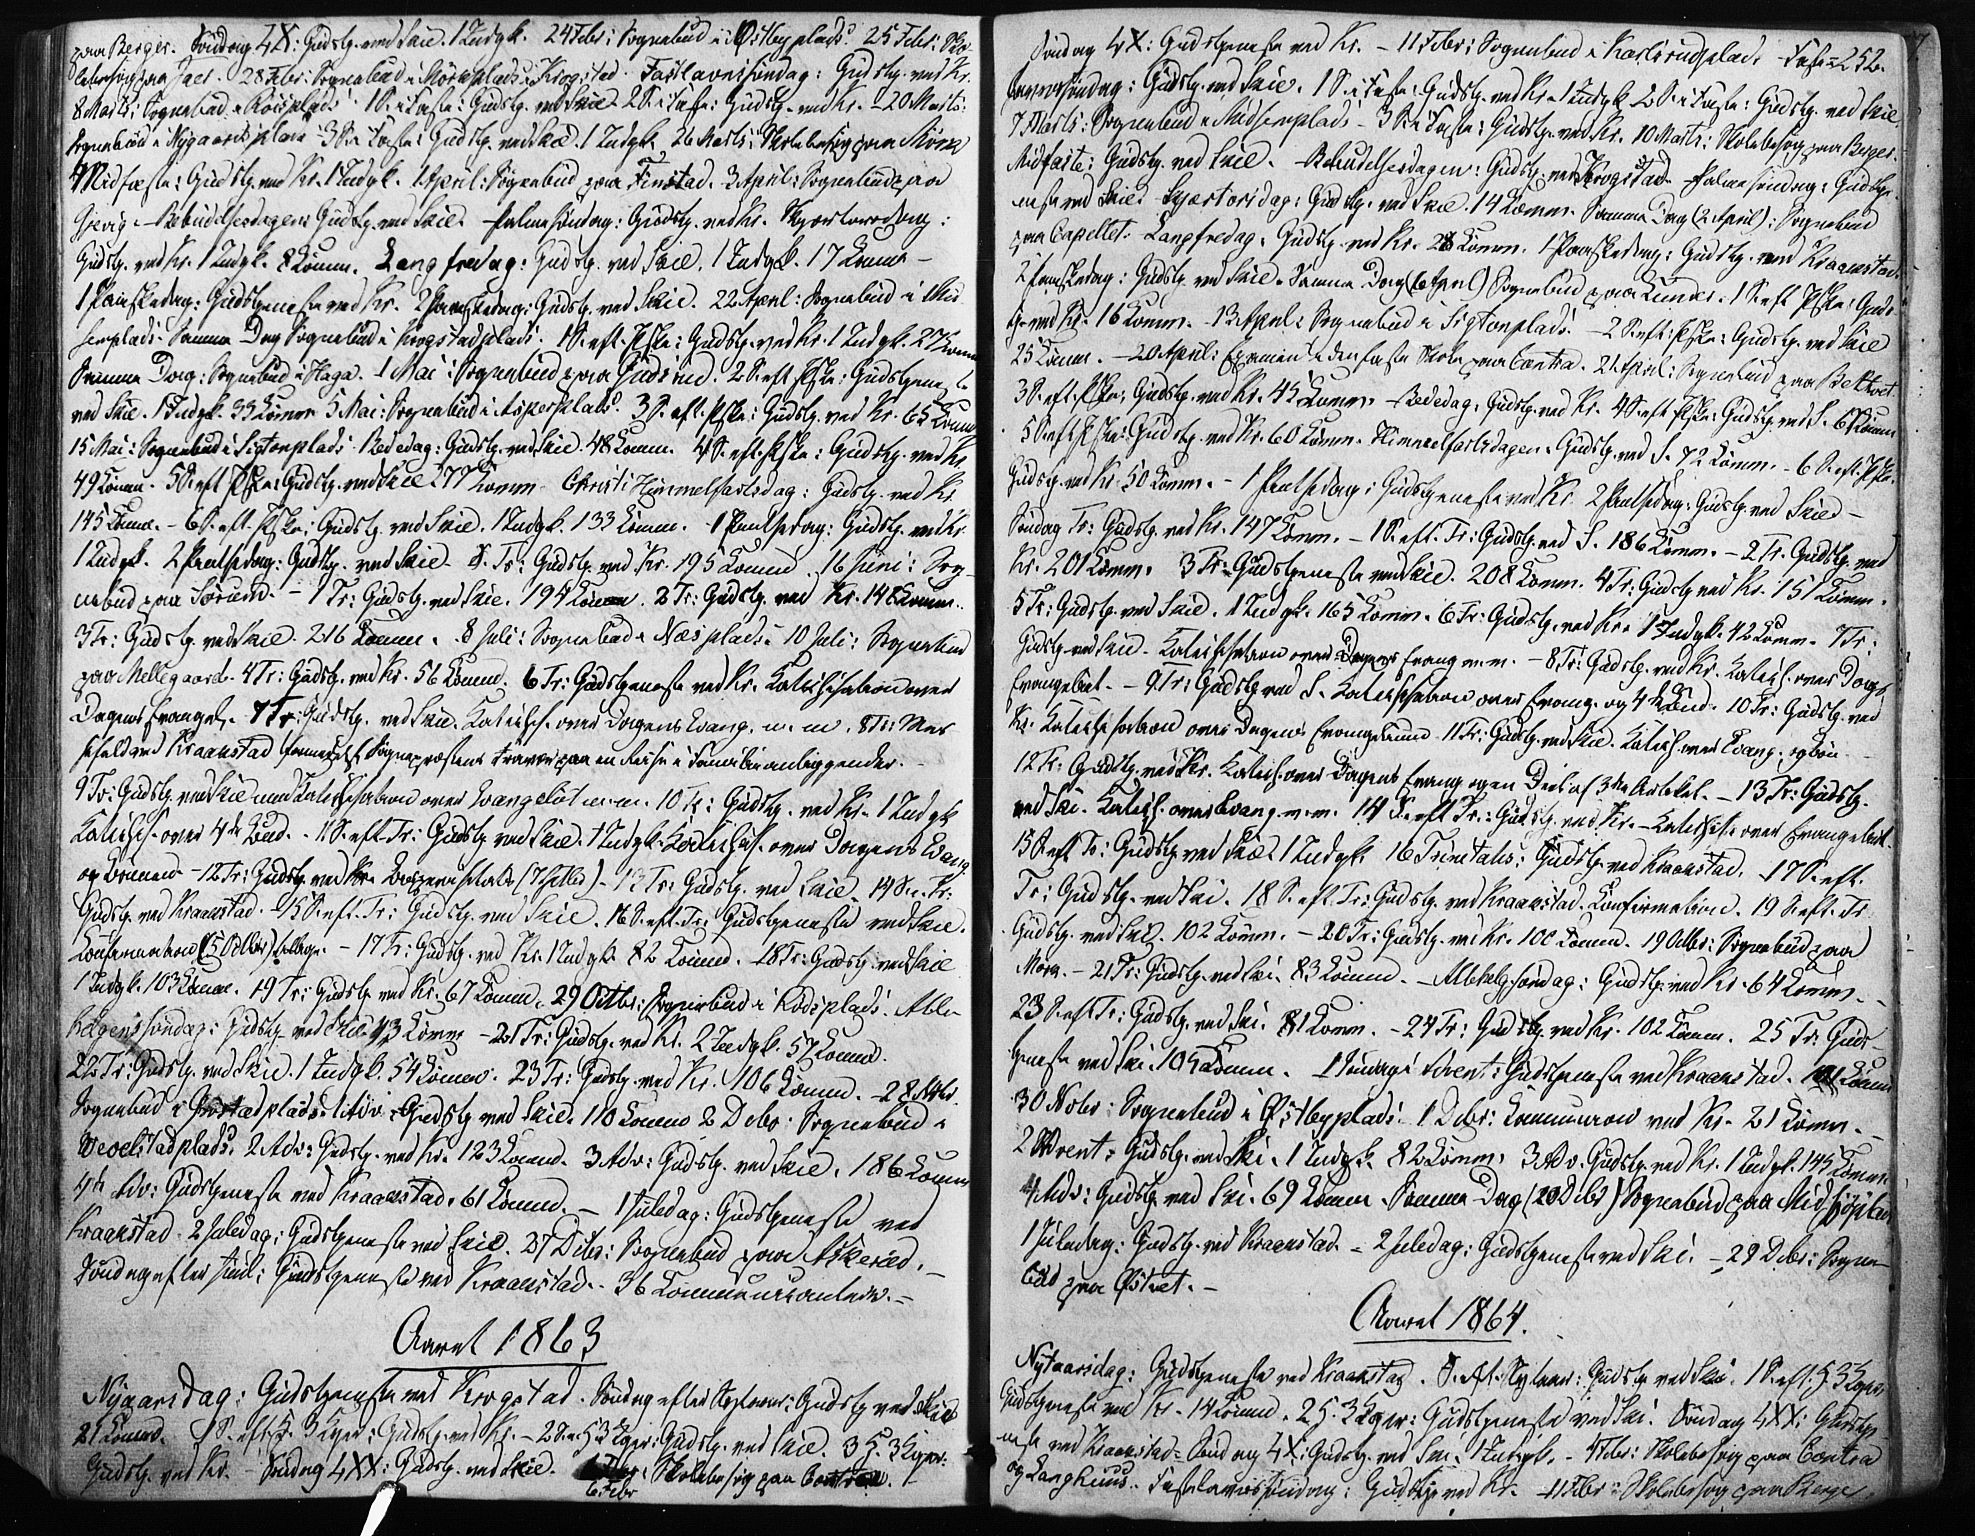 paa Berger. Søndag 4X: Gudstj. ved Skie. 1 Indgk. 24 Febr: Sognebud i Østbyplads. 25 Febr: Sko-
lebesøg paa Jaer. 28 Febr: Sognebud i Mörkplads i Krogstad. Fastlavnssøndag: Gudstj. ved Kr.
8 Marts: Sognebud i Rösplads. 1 S. i Faste: Gudstj. ved Skie. 2 S. i Faste: Gudstj. ved Kr. - 20 Marts:
Sognebud i Nygaardsplads. 3 S. i Faste: Gudstj. ved Skie. 1 Indgk. 26 Marts: Skolebesøg paa Mörk
Midfaste: Gudstj. ved Kr. 1 Indgk. 1 April: Sognebud paa Finstad. 3 April: Sognebud paa
Gjevig. - Bebudelsesdagen Gudstj. ved Skie. Palmesøndag: Gudstj. ved Kr. Skjærtorsdag:
Gudstj. ved Kr. 1 Indgk. 8 Komm. Langfredag: Gudstj. ved Skie. 1 Indgk. 17 Komm. -
1 Paaskedag: Gudstjeneste ved Kr. 2 Paaskedag: Gudstj. ved Skie. 22 April: Sognebud i Mid-
senplads. Samme Dag Sognebud i Krogstadplads. 1 S. eft. Pske: Gudstj. ved Kr. 1 Indgk. 27 Komm
Samme Dag: Sognebud i Haga. 1 Mai: Sognebud paa Gudsned. 2 S. eft. Pske: Gudstjeneste
ved Skie. 1 Indgk. 33 Komm. 5 Mai: Sognebud i Aspersplads. 3 S. eft. Pske: Gudstj. ved Kr. 65 Komm
15 Mai: Sognebud i Sigtonplads. Bededag: Gudstj. ved Skie. 48 Komm. 4 S. eft. Pske: Gudstj. ved Kr.
49 Komm. 5 S. eft. Pske: Gudstj. ved Skie 277 Komm. Christi Himmelfartsdag: Gudstj. ved Kr.
145 Komm. - 6 S. eft. Pske: Gudstj. ved Skie. 1 Indgk. 133 Komm. - 1 Pintsedag: Gudstj. ved Kr.
1 Indgk. 2 Pintsedag: Gudstj. ved Skie. S. Tr: Gudstj. ved Kr. 195 Komm. 16 Juni: Sog-
nebud paa Sörum. - 1 Tr: Gudstj. ved Skie. 194 Komm. 2 Tr: Gudstj. ved Kr. 148 Komm.
3 Tr: Gudstj. ved Skie. 216 Komm. 8 Juli: Sognebud i Næsplads. 10 Juli: Sognebud
paa Mellegaard. 4 Tr: Gudstj. ved Kr. 56 Komm. 6 Tr: Gudstjeneste ved Kr. Katechisation over
Dagens Evangel. 7 Tr: Gudstj. ved Skie. Katechs. over Dagens Evang. m. m. 8 Tr: Mes-
sefald ved Kraakstad Sognepræstens Fravær paa en Reise i Familieanliggender. -
9 Tr: Gudstj. ved Skie med Katechisation over Evangeliet m. m. 10 Tr: Gudstj. ved Kr. 1 Indgk
Katechs. over 4de Bud. - 11 S. eft. Tr: Gudstj. ved Skie. 1 Indgk. Katechs. over Dagens Evang.
og Bönnen - 12 Tr: Gudstj. ved Kr. (7 Sept.) - 13 Tr: Gudstj. ved Skie. 14 S. e. Tr:
Gudstj. ved Kraakstad. 15 S. eft. Tr: Gudstj. ved Skie. 16 S. eft. Tr: Gudstjeneste ved Skie.
Confirmation (5 Octbr) - 17 Tr: Gudstj. ved Kr. 1 Indgk. 82 Komm. 18 Tr: Gudstj. ved Skie
1 Indgk. 103 Komm. 19 Tr: Gudstj. ved Kr. 67 Komm. 29 Octbr: Sognebud i Rösplads. Alle-
helgenssöndag: Gudstj. ved Skie. 43 Komm. - 21 Tr: Gudstj. ved Kr. 2 Indgk. 57 Komm.
22 Tr: Gudstj. ved Skie. 1 Indgk. 54 Komm. 23 Tr: Gudstj. ved Kr. 106 Komm. - 28 Novbr.
Sognebud i Gjestadplads. 1 Adv: Gudstj. ved Skie. 110 Komm. 2 Decbr: Sognebud i
Vevelstadplads. 2 Adv: Gudstj. ved Kr. 123 Komm. 3 Adv: Gudstj. ved Skie. 186 Komm
4de Adv: Gudstjeneste ved Kraakstad. 61 Komm. - 1 Juledag: Gudstjeneste ved
Kraakstad. 2 Juledag: Gudstjeneste ved Skie. 27 Decbr: Sognebud paa Askerud. -
Søndag efter Juul: Gudstjeneste ved Kraakstad. - 36 Communicanter. -
Aaret 1863
Nyaarsdag: Gudstjeneste ved Krogstad. Søndag efter Nytaar: Gudstj. ved Skie
21 Komm. 1 S. eft. H. 3 Kger: Gudstj. ved Kr. - 2 S. e. H. 3 Kger: Gudstj. ved Skie. 3 H. 3 Kger.
Gudstj. ved Kr. - Søndag 4XX: Gudstj. ved Skie. 6 Febr: Skolebesøg paa Contra.
6 Febr
Søndag 4X: Gudstjeneste ved Kr. - 11 Febr: Sognebud i Karlsrudplads. Faste- 252.
lavnssøndag: Gudstj. ved Skie. 1 S. i Faste: Gudstj. ved Kr. 1 Indgk. 2 S. i Faste: Gudstj. ved Skie.
7 Marts: Sognebud i Midsemplads - 3 S. i Faste: Gudstj. ved Kr. 10 Marts: Skolebesøg paa Berger.
Midfaste: Gudstj. ved Skie. - Bebudelsesdagen: Gudstj. ved Krogstad - Palmesøndag: Gudstje-
neste ved Skie. Skjærtorsdag: Gudstj. ved Skie. 14 Komm. Samme Dag (2 April): Sognebud
paa Capellet. Langfredag: Gudstj. ved Kr. 28 Komm. 1 Paaskedag: Gudstj. ved Kraakstad.
2 Paaskedag: Gudstj. ved Skie. Samme Dag (6 April) Sognebud paa Lunder. 1 S. eft. Pske: Guds-
tj. ved Kr. 16 Komm. - 13 April: Sognebud i Sigtonplads. - 2 S. eft. Pske: Gudstj. ved Skie
25 Komm. - 20 April: Examen i den faste Skole paa Contra. 21 April: Sognebud paa Bekkvet
3 S. eft. Pske: Gudstj. ved Kr. 45 Komm. Bededag: Gudstj. ved Kr. 4 S. eft. Pske: Gudstj. ved S. 67 Komm
5 S. eft. Pske: Gudstj. ved Kr. 60 Komm. Himmelfartsdagen: Gudstj. ved S. 72 Komm. - 6 S. eft. Pske:
Gudstj. ved Kr. 50 Komm. - 1 Pintsedag: Gudstjeneste ved Kr. 2 Pintsedag: Gudstj. ved Skie -
Søndag Tr: Gudstj. ved Kr. 147 Komm. - 1 S. eft. Tr: Gudstj. ved S. 186 Komm. - 2 Tr. Gudstj. ved
Kr. 201 Komm. 3 Tr: Gudstjeneste ved Skie. 208 Komm. 4 Tr: Gudstj. ved Kr. 151 Komm.
5 Tr: Gudstj. ved Skie. 1 Indgk. 165 Komm. 6 Tr: Gudstj. ved Kr. 1 Indgk. 42 Komm. 7 Tr:
Gudstj. ved Skie. Katechisation over Dagens Evang. m. m. - 8 Tr: Gudstj. ved Kr. Katech. over Dagens
Evangeliet. - 9 Tr: Gudstj. ved S. Katechisation over Evang. og 4de Bud. 10 Tr: Gudstj. ved
Kr. Katechisation over Dagens Evangelium. 11 Tr: Gudstj. ved Skie. Katech. over Evang. og Bön
12 Tr. Gudstj. ved Kr. Katech. over Dagens Evang. og en Deel af 3die Artikel. - 13 Tr: Gudstj.
ved Ski. Katech. over Evang. m. m. 14 S. eft. Tr.: Gudstj. ved Kr. - Katechis. over Evangeliet.
15 S. eft. Tr: Gudstj. ved Skie. 1 Indgk. 16 Trinitatis: Gudstj. ved Kraakstad. 17 S. eft.
Tr: Gudstj. ved Ski. 18 S. eft. Tr: Gudstj. ved Kraakstad. Confirmation. 19 S. eft. Tr
Gudstj. ved Ski. 102 Komm. - 20 Tr: Gudstj. ved Kr. 100 Komm. 19 Octbr: Sognebud paa
Mörk. - 21 Tr: Gudstj. ved Ski. 83 Komm. - Allehelg.søndag: Gudstj. ved Kr. 64 Komm. -
23 S. eft. Tr: Gudstj. ved Ski. 81 Komm. - 24 Tr: Gudstj. ved Kr. 102 Komm. 25 Tr: Guds-
tjeneste ved Ski. 105 Komm. 1 Søndag i Advent: Gudstjeneste ved Kraakstad. 101 Komm
30 Novbr: Sognebud i Østbyplads. 1 Decbr: Communion ved Kr. 21 Komm. -
2 Advent: Gudstj. ved Ski. 1 Indgk. 82 Komm. 3 Adv. Gudstj. ved Kr. 1 Indgk. 145 Komm.
4 Adv: Gudstj. ved Ski. 69 Komm. Samme Dag (20 Decbr) Sognebud paa
1 Juledag: Gudstj. ved Kraakstad. - 2 Juledag: Gudstjeneste ved Ski. - 29 Decbr: Sogne-
bud paa Østvet. -
Aaret 1864.
Nytaarsdag: Gudstjeneste ved Kraakstad. S. eft. Nytaar: Gudstj. ved Ski. 1 S. eft. H. 3 Kger.
Gudstjeneste ved Kr. 14 Komm. 2 S. 3 Kger: Gudstjeneste ved Ski. Søndag 4XX: Gudstje-
neste ved Kraakstad. Søndag 4X: Gudstj. ved Ski. 1 Indgk. - Febr: Skolebesøg paa Contra
og Langhuus. Fastelavnssøndag: Gudstj. ved Kr. 11 Febr: Skolebesøg paa Berger.